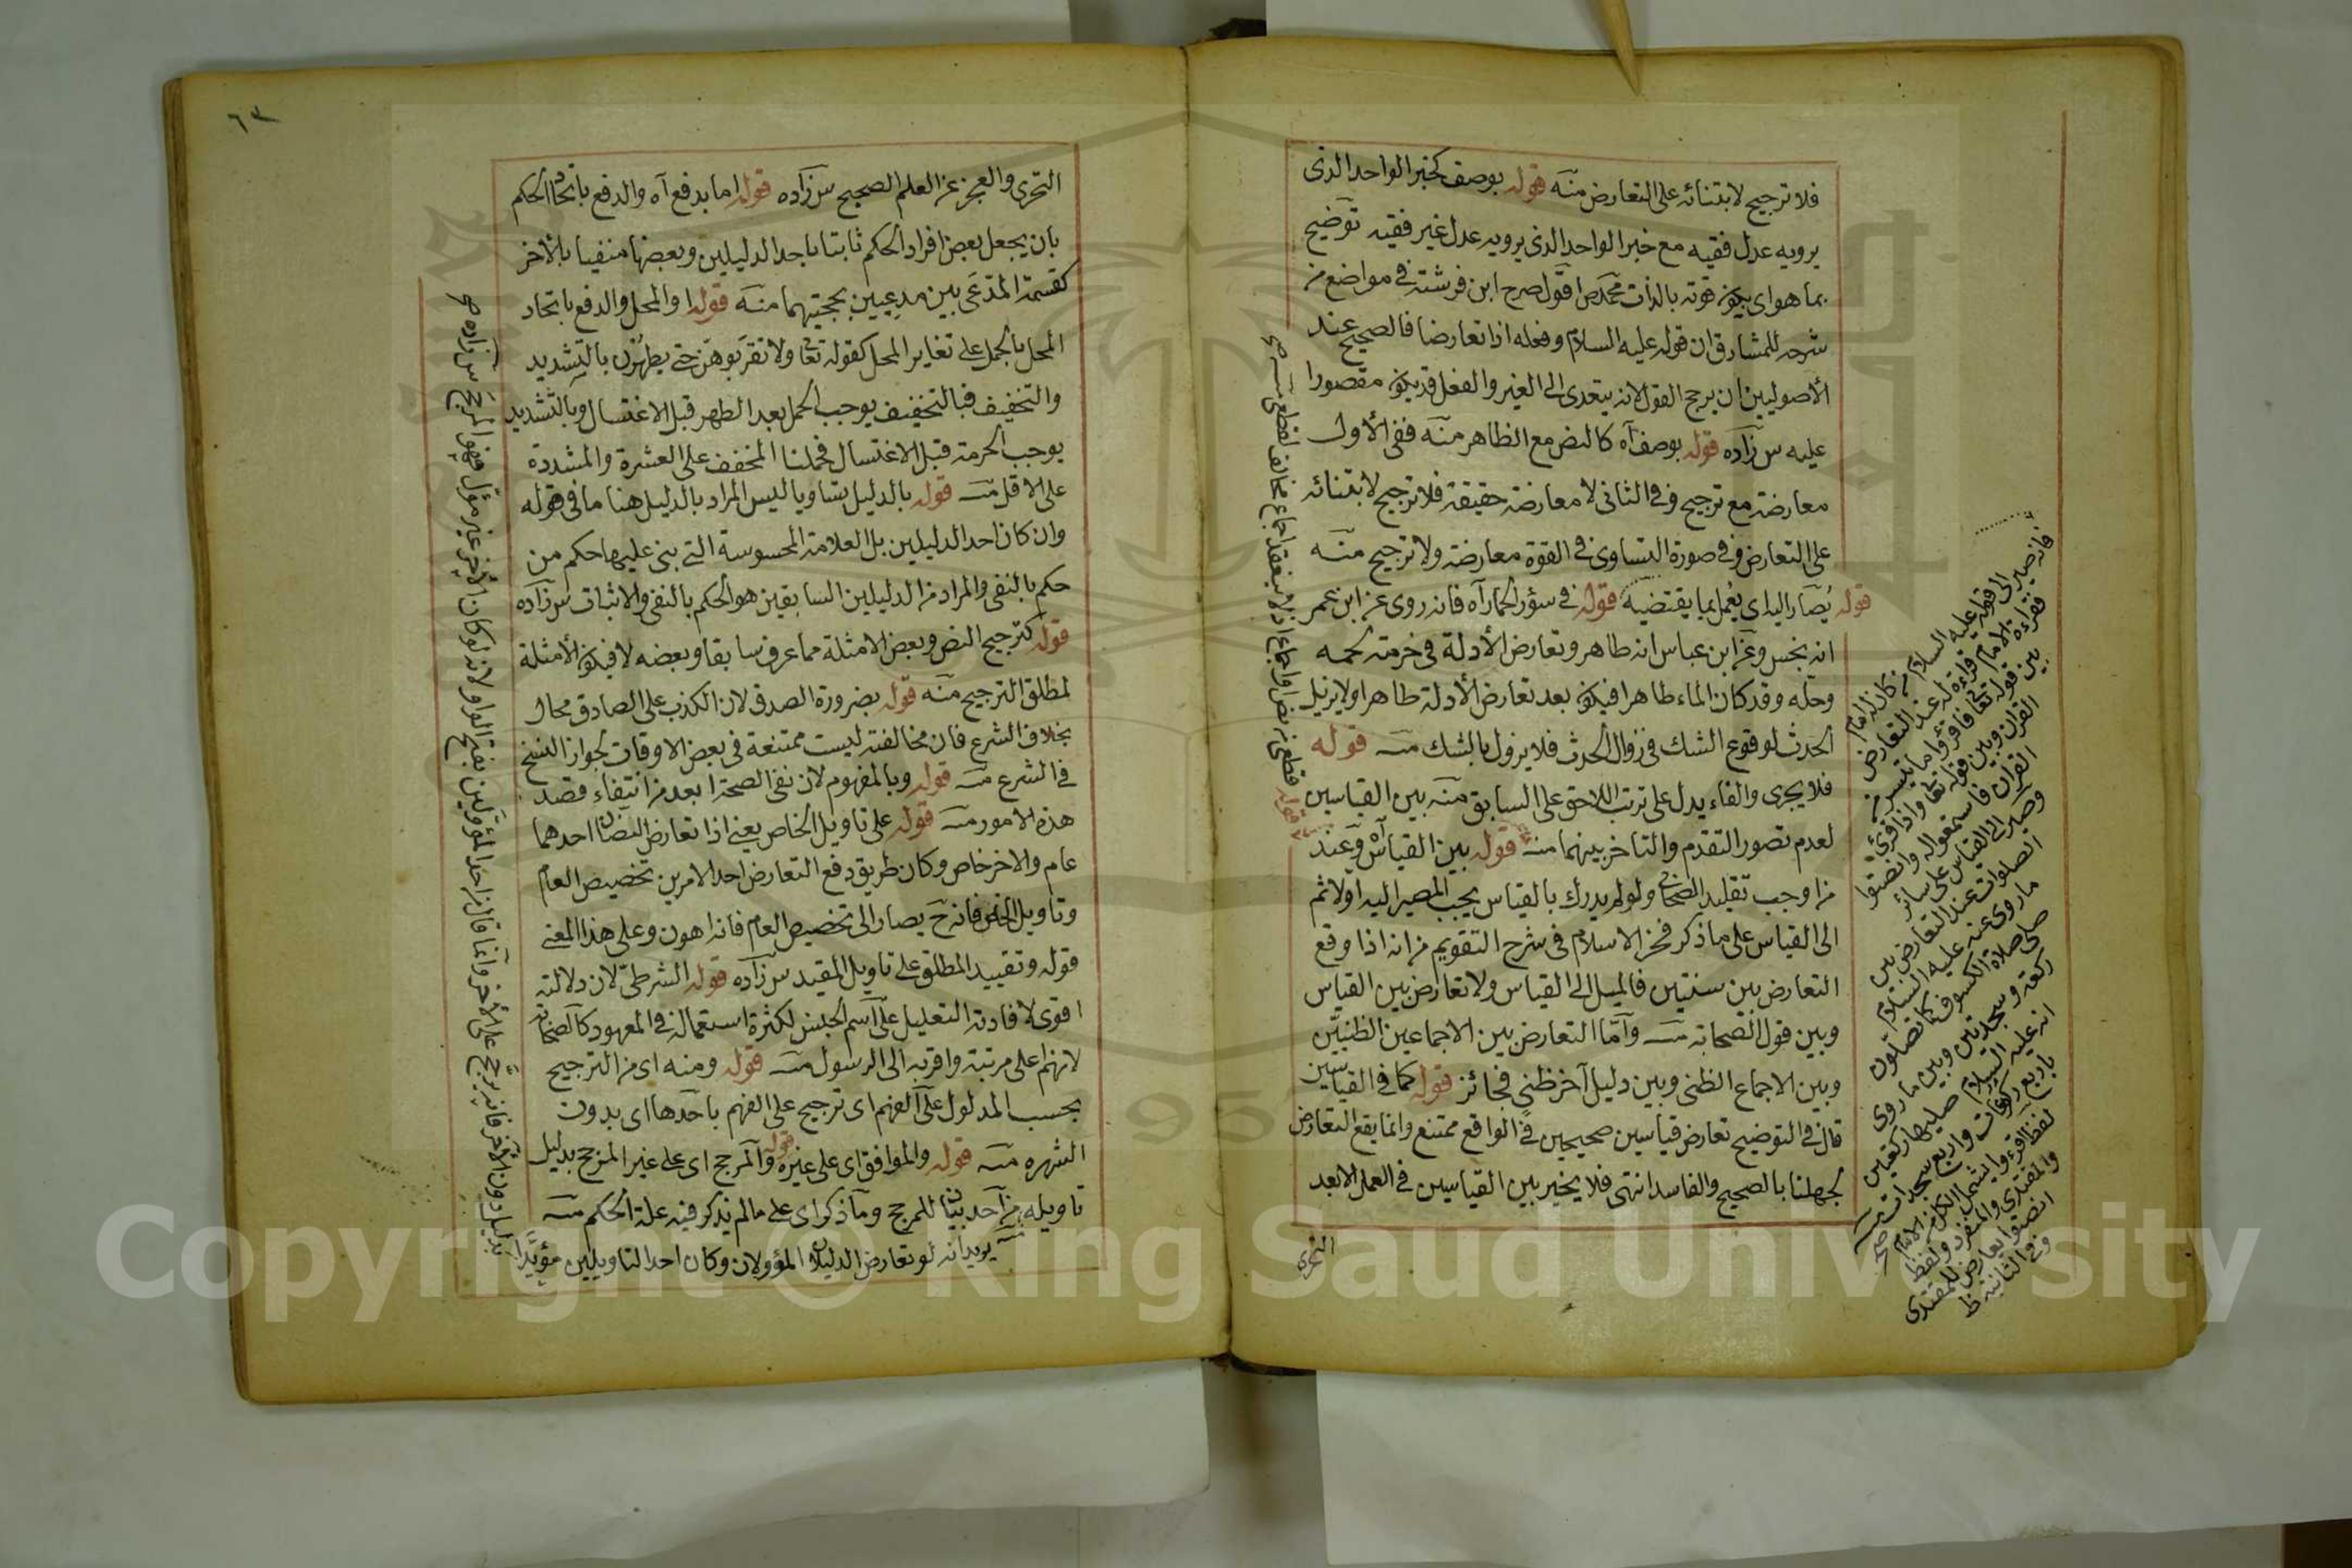 فلا ترجيح لابتنائه على التعارض منه قوله بوصف كخبر الواحد الذى
يرويه عدل فقيه مع خبر الواحد الذى يرويه عدل غير فقيه توضيح
بما هو اى يكون قوته بالذات اقول صرح ابن فرشته فى مواضع من
شرحه للمشارق ان قوله عليه السلام وفعله اذا تعارضا فالصحيح عند
الأصوليين ان يرجح القول لانه يتعدى الى الغير والفعل قد يكون مقصورا
عليه س زاده قوله بوصف آه كالنص مع الظاهر منه ففى الأول
معارضة مع ترجيح وفى الثانى لا معارضة حقيقة فلا ترجيح لابتنائه
على التعارض وفى صورة التساوى فى القوة معارضة ولا ترجيح منه
قوله يصار اليه اى يعمل بما يقتضيه قوله فى سؤر الحمار آه فانه روى عن ابن عمر
انه نجس وعن ابن عباس انه طاهر وتعارض الأدلة فى حرمة لحمه
وحله وقد كان الماء طاهرا فيكون بعد تعارض الأدلة طاهرا ولا يزيل
الحدث لوقوع الشك فى زوال الحدث فلا يزول بالشك منه قوله
فلا يجرى والفاء يدل على ترتب اللاحق على السابق منه بين القياسين
لعدم تصور التقدم والتاخر بينهما منه قوله بين القياس وعند
من اوجب تقليد الصحابى ولو لم يدرك بالقياس يجب المصير اليه اولا ثم
الى القياس على ما ذكر فخر الاسلام فى شرح التقويم من انه اذا وقع
التعارض بين سنتين فالميل الى القياس ولا تعارض بين القياس
وبين قول الصحابة منه وأما التعارض بين الاجماعين الظنيين
وبين الاجماع الظنى وبين دليل آخر ظنى فجائز قوله كما فى القياسين
قال فى التوضيح تعارض قياسين صحيحين فى الواقع ممتنع وانما يقع التعارض
لجهلنا بالصحيح والفاسد انتهى فلا يخير بين القياسين فى العمل الا بعد
التحرى
فانه صير الى قوله عليه السلام من كان له امام
فقراءة الامام قراءة له عند التعارض
بين قوله تعالى فاقرؤا ما تيسر من
القرآن وبين قوله تعالى واذا قرئ
القرآن فاستمعوا له وانصتوا
وصير الى القياس على سائر
الصلوات عند التعارض بين
ما روى عنه عليه السلام
صلى صلاة الكسوف كما تصلون
ركعة وسجدتين وبين ما روى
انه عليه السلام صليها ركعتين
باربع ركوعات واربع سجدات منه
لفظ اقرءوا يشمل الكل من الامام
والمقتدى والمنفرد ولفظ
انصتوا يعارض للمقتدى
وفى الثانية ظ
٦٣
التحرى والعجز عن العلم الصحيح س زاده قوله اما بدفع آه والدفع باتحاد الحكم
بان يجعل بعض افراد الحكم ثابتا باحد الدليلين وبعضها منفيا بالأخر
كقسمة المدعى بين مدعيين بحجتيهما منه قوله او المحل والدفع باتحاد
المحل بالحمل على تغاير المحل كقوله تعالى ولا تقربوهن حتى يطهرن بالتشديد
والتخفيف فبالتخفيف يوجب الحمل بعد الطهر قبل الاغتسال وبالتشديد
يوجب الحرمة قبل الاغتسال فحملنا المخفف على العشرة والمشددة
على الاقل منه قوله بالدليل ليس المراد بالدليل هنا ما فى قوله
وان كان احد الدليلين بل العلامة المحسوسة التى بنى عليها حكم من
حكم بالنفى والمراد من الدليلين السابقين هو الحكم بالنفى والاثبات س زاده
قوله كترجيح النص وبعض الامثلة مما عرف سابقا وبعضه لا فيكون الأمثلة
لمطلق الترجيح منه قوله بضرورة الصدق لان الكذب على الصادق محال
بخلاف الشرع فان مخالفته ليست ممتنعة فى بعض الاوقات لجواز النسخ
فى الشرع منه قوله وبالمفهوم لان نفى الصحة ابعد من انتفاء قصد
هذه الامور منه قوله على تاويل الخاص يعنى اذا تعارض النصان احدهما
عام والاخر خاص وكان طريق دفع التعارض احد الامرين تخصيص العام
وتاويل الخاص فانه ح يصار الى تخصيص العام فانه اهون وعلى هذا المعنى
قوله وتقييد المطلق على تاويل المقيد س زاده قوله الشرطى لان دلالته
اقوى لافادته التعليل على اسم الجنس لكثرة استعماله فى المعهود كالصحابة
لانهم اعلى مرتبة واقربه الى الرسول منه قوله ومنه اى من الترجيح
بحسب المدلول على الفهم اى ترجيح على الفهم باحدها اى بدون
الشهره منه قوله والموافق اى على غيره قوله والمرجح اى على غير المرجح بدليل
تاويله من احد للمرجح وما ذكر اى على ما لم يذكر فيه علة الحكم منه
يريد انه لو تعارض الدليلان المؤولان وكان احد التاويلين مؤيدا